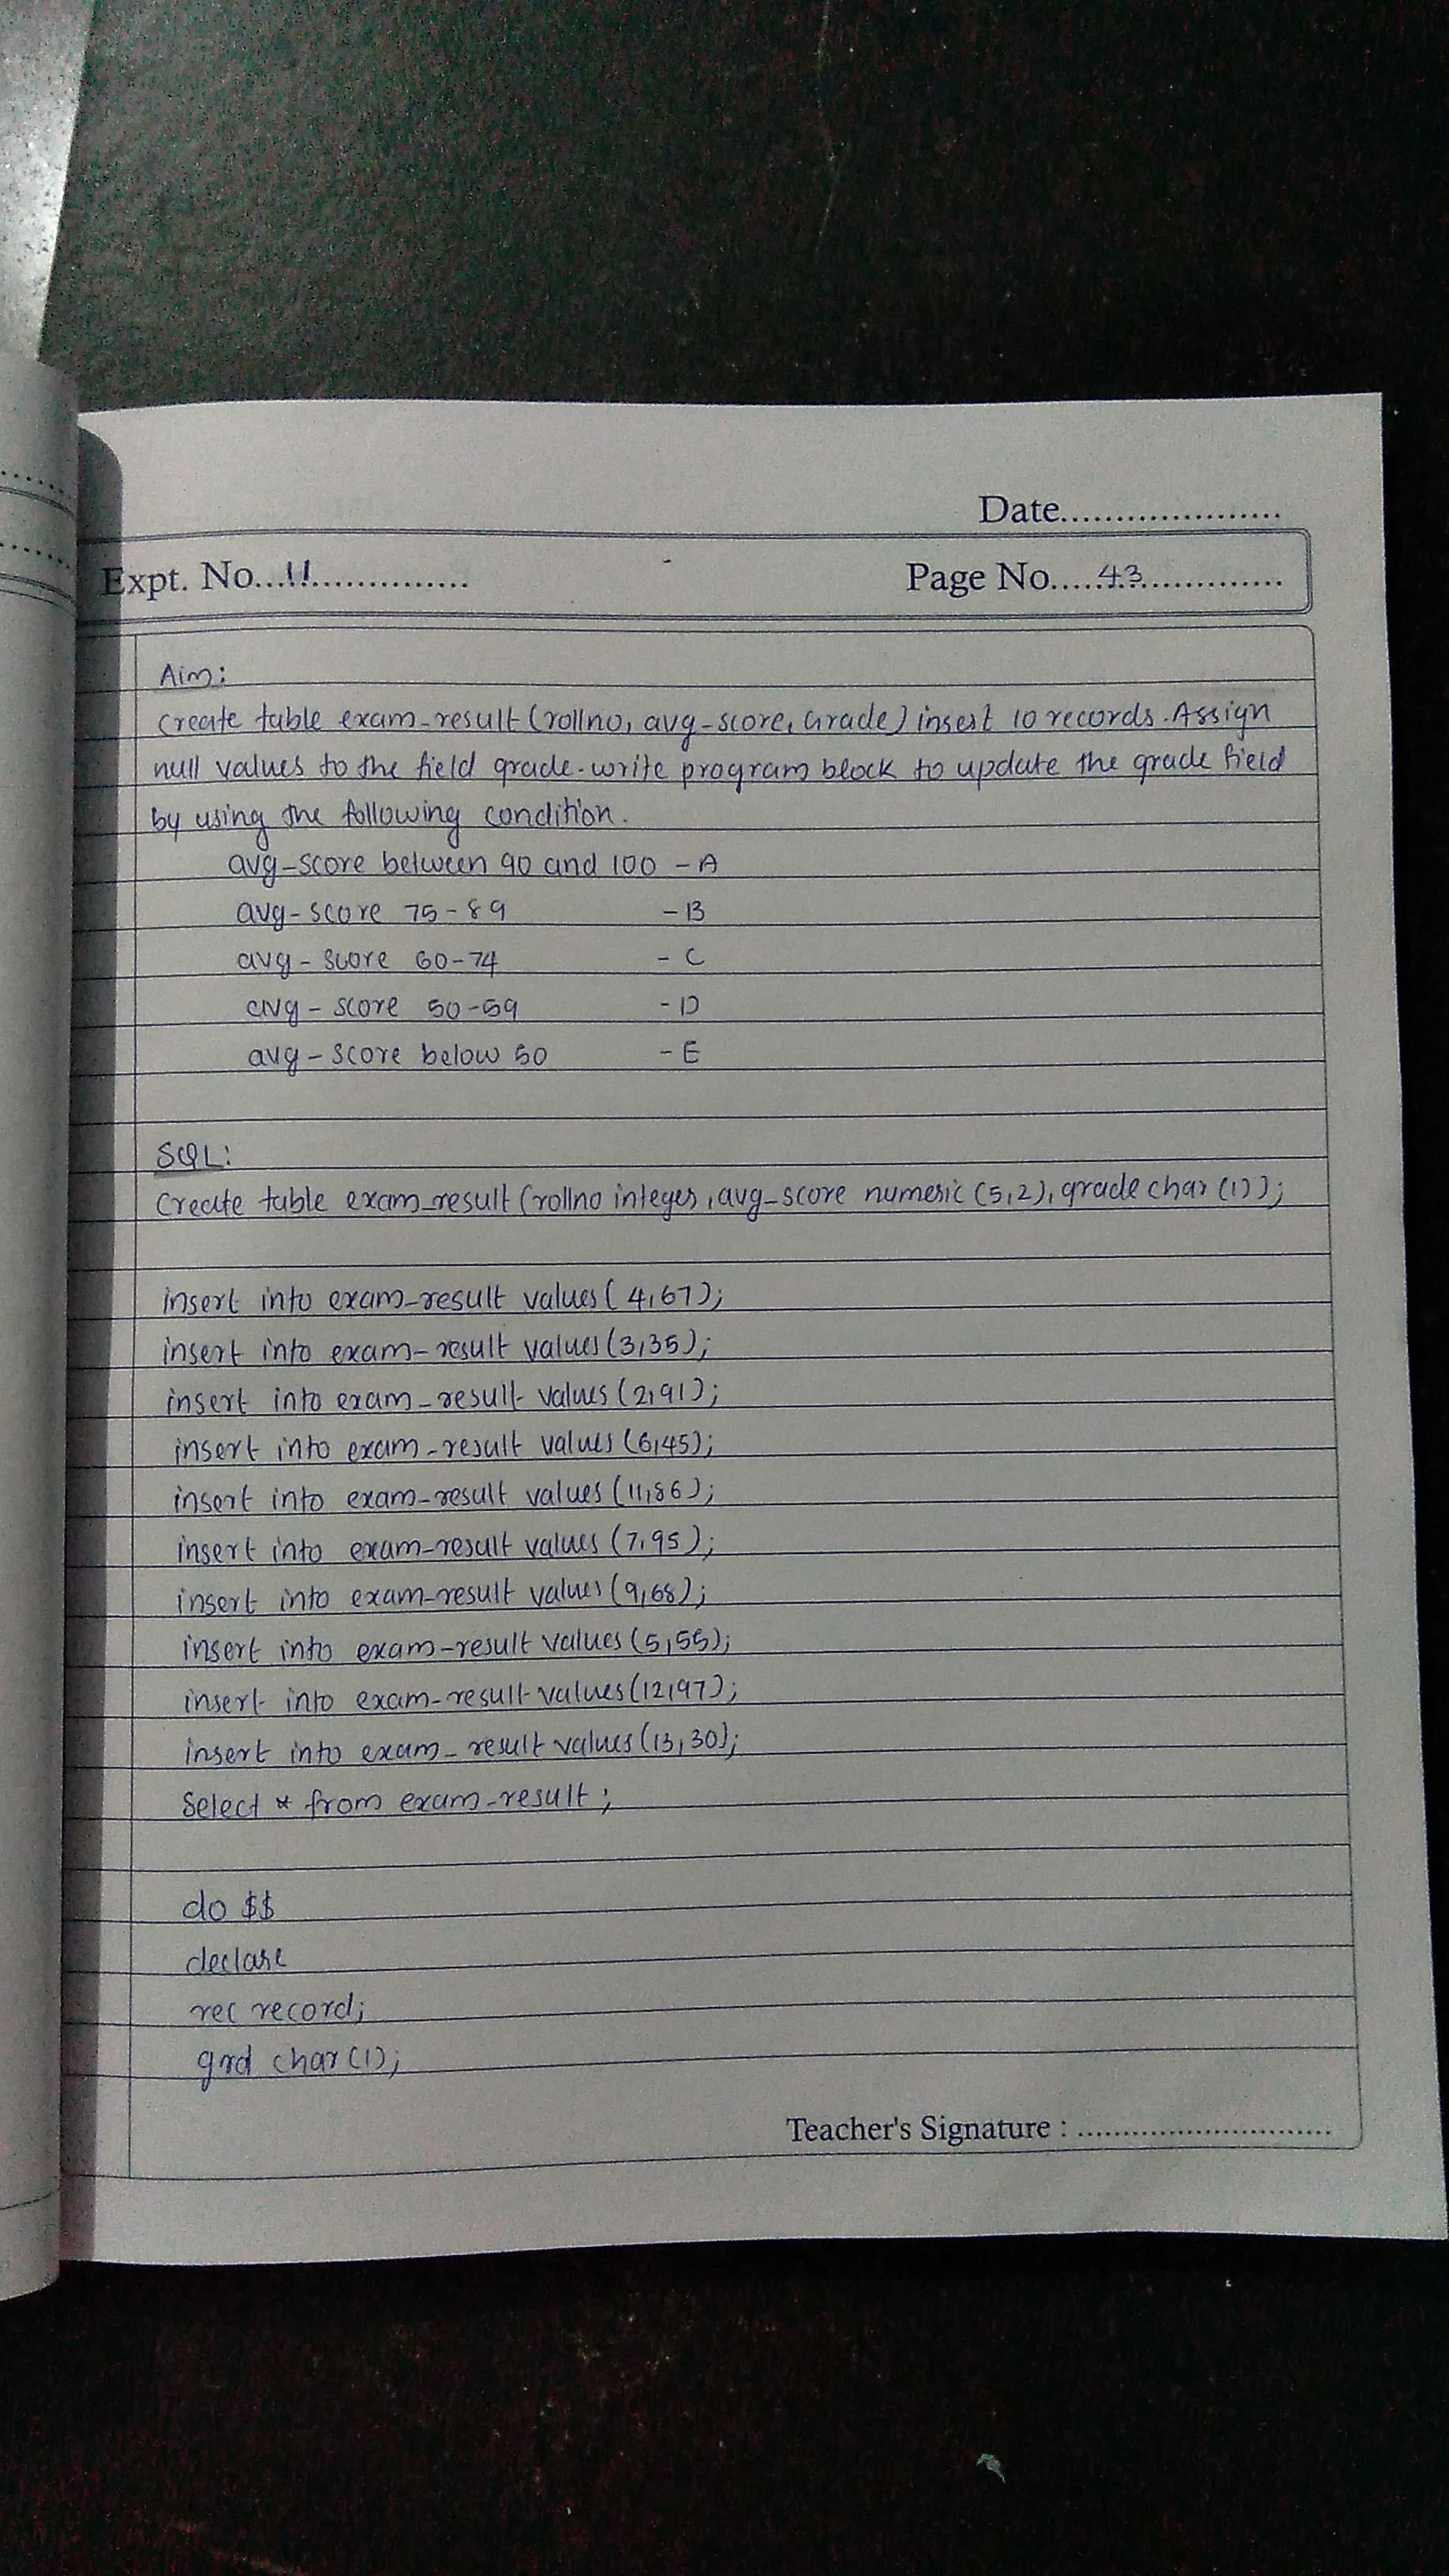 Date....................
Expt. No...11.............. Page No.....43.............
Aim:
Create table exam-result (rollno, avg-score, Grade) insert 10 records. Assign
null values to the field grade. write program block to update the grade field
by using the following condition.
avg-score between 90 and 100 - A
avg-score 75-89 - B
avg-score 60-74 - C
avg-score 50-59 - D
avg-score below 50 - E
SQL:
Create table exam_result (rollno integer, avg_score numeric (5,2), grade char (1));
insert into exam-result values (4,67);
insert into exam-result values (3,35);
insert into exam_result values (2,91);
insert into exam-result values (6,45);
insert into exam-result values (11,86);
insert into exam-result values (7,95);
insert into exam-result values (9,68);
insert into exam-result values (5,55);
insert into exam-result values (12,97);
insert into exam_result values (13,30);
Select * from exam-result;
do $$
declare
rec record;
grd char (1);
Teacher's Signature : ............................